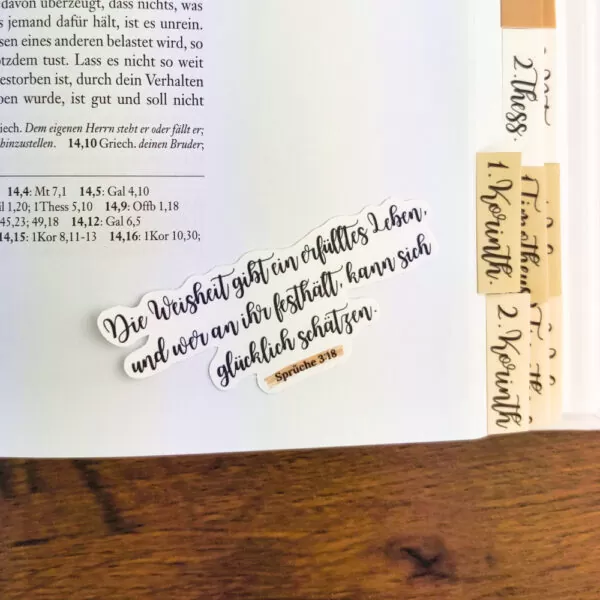 davon überzeugt, dass nichts, was
jemand dafür hält, ist es unrein.
eines anderen belastet wird, so
tust. Lass es nicht so weit
durch dein Verhalten
wurde, ist gut und soll nicht
Griech. Dem eigenen Herrn steht er oder fällt er;
hinzustellen. 14,10 Griech. deinen Bruder;
14,4: Mt 7,1 14,5: Gal 4,10
1,20; 1Thess 5,10 14,9: Offb 1,18
45,23; 49,18 14,12: Gal 6,5
14,15: 1Kor 8,11-13 14,16: 1Kor 10,30;
Die Weisheit gibt ein erfülltes Leben,
und wer an ihr festhält, kann sich
glücklich schätzen.
Sprüche 3:18
2.Thess.
1.Korinth.
Timotheus
2.Korinth